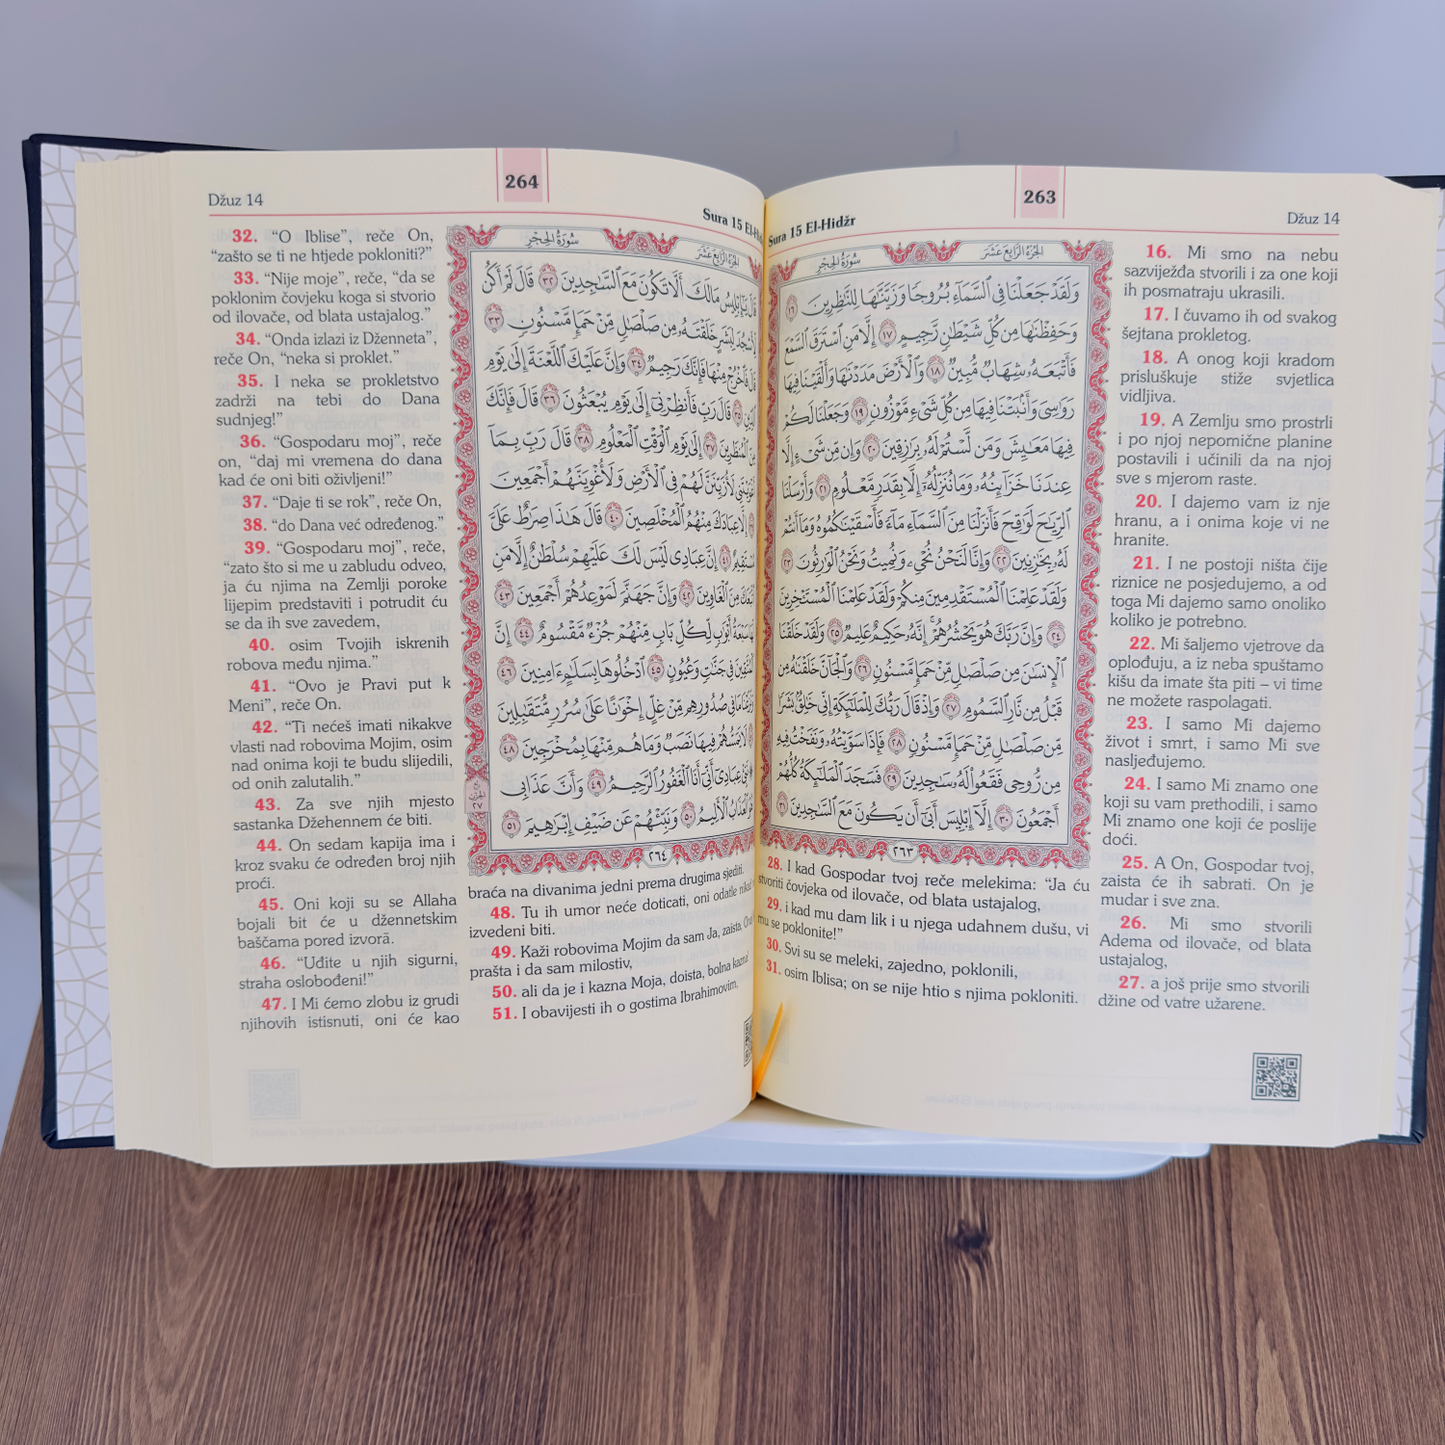 263
Džuz 14
Sura 15 El-Hidžr
الجزء الرابع عشر
سورة الحجر
وَلَقَدْ جَعَلْنَا فِي السَّمَاءِ بُرُوجًا وَزَيَّنَّاهَا لِلنَّاظِرِينَ ١٦
وَحَفِظْنَاهَا مِن كُلِّ شَيْطَانٍ رَّجِيمٍ ١٧ إِلَّا مَنِ اسْتَرَقَ السَّمْعَ
فَأَتْبَعَهُ شِهَابٌ مُّبِينٌ ١٨ وَالْأَرْضَ مَدَدْنَاهَا وَأَلْقَيْنَا فِيهَا
رَوَاسِيَ وَأَنبَتْنَا فِيهَا مِن كُلِّ شَيْءٍ مَّوْزُونٍ ١٩ وَجَعَلْنَا لَكُمْ
فِيهَا مَعَايِشَ وَمَن لَّسْتُمْ لَهُ بِرَازِقِينَ ٢٠ وَإِن مِّن شَيْءٍ إِلَّا
عِندَنَا خَزَائِنُهُ وَمَا نُنَزِّلُهُ إِلَّا بِقَدَرٍ مَّعْلُومٍ ٢١ وَأَرْسَلْنَا
الرِّيَاحَ لَوَاقِحَ فَأَنزَلْنَا مِنَ السَّمَاءِ مَاءً فَأَسْقَيْنَاكُمُوهُ وَمَا أَنتُمْ
لَهُ بِخَازِنِينَ ٢٢ وَإِنَّا لَنَحْنُ نُحْيِي وَنُمِيتُ وَنَحْنُ الْوَارِثُونَ ٢٣
وَلَقَدْ عَلِمْنَا الْمُسْتَقْدِمِينَ مِنكُمْ وَلَقَدْ عَلِمْنَا الْمُسْتَأْخِرِينَ
٢٤ وَإِنَّ رَبَّكَ هُوَ يَحْشُرُهُمْ إِنَّهُ حَكِيمٌ عَلِيمٌ ٢٥ وَلَقَدْ خَلَقْنَا
الْإِنسَانَ مِن صَلْصَالٍ مِّنْ حَمَإٍ مَّسْنُونٍ ٢٦ وَالْجَانَّ خَلَقْنَاهُ مِن
قَبْلُ مِن نَّارِ السَّمُومِ ٢٧ وَإِذْ قَالَ رَبُّكَ لِلْمَلَائِكَةِ إِنِّي خَالِقٌ بَشَرًا
مِّن صَلْصَالٍ مِّنْ حَمَإٍ مَّسْنُونٍ ٢٨ فَإِذَا سَوَّيْتُهُ وَنَفَخْتُ فِيهِ
مِن رُّوحِي فَقَعُوا لَهُ سَاجِدِينَ ٢٩ فَسَجَدَ الْمَلَائِكَةُ كُلُّهُمْ
أَجْمَعُونَ ٣٠ إِلَّا إِبْلِيسَ أَبَىٰ أَن يَكُونَ مَعَ السَّاجِدِينَ ٣١
٢٦٣
16. Mi smo na nebu
sazviježđa stvorili i za one koji
ih posmatraju ukrasili.
17. I čuvamo ih od svakog
šejtana prokletog.
18. A onog koji kradom
prisluškuje stiže svjetlica
vidljiva.
19. A Zemlju smo prostrli
i po njoj nepomične planine
postavili i učinili da na njoj
sve s mjerom raste.
20. I dajemo vam iz nje
hranu, a i onima koje vi ne
hranite.
21. I ne postoji ništa čije
riznice ne posjedujemo, a od
toga Mi dajemo samo onoliko
koliko je potrebno.
22. Mi šaljemo vjetrove da
oplođuju, a iz neba spuštamo
kišu da imate šta piti – vi time
ne možete raspolagati.
23. I samo Mi dajemo
život i smrt, i samo Mi sve
nasljeđujemo.
24. I samo Mi znamo one
koji su vam prethodili, i samo
Mi znamo one koji će poslije
doći.
25. A On, Gospodar tvoj,
zaista će ih sabrati. On je
mudar i sve zna.
26. Mi smo stvorili
Adema od ilovače, od blata
ustajalog,
27. a još prije smo stvorili
džine od vatre užarene.
28. I kad Gospodar tvoj reče melekima: “Ja ću
stvoriti čovjeka od ilovače, od blata ustajalog,
29. i kad mu dam lik i u njega udahnem dušu, vi
mu se poklonite!”
30. Svi su se meleki, zajedno, poklonili,
31. osim Iblisa; on se nije htio s njima pokloniti.
264
Džuz 14
Sura 15
الجزء الرابع عشر
سورة الحجر
يَا إِبْلِيسُ مَا لَكَ أَلَّا تَكُونَ مَعَ السَّاجِدِينَ ٣٢ قَالَ لَمْ أَكُن
لِّأَسْجُدَ لِبَشَرٍ خَلَقْتَهُ مِن صَلْصَالٍ مِّنْ حَمَإٍ مَّسْنُونٍ ٣٣
قَالَ فَاخْرُجْ مِنْهَا فَإِنَّكَ رَجِيمٌ ٣٤ وَإِنَّ عَلَيْكَ اللَّعْنَةَ إِلَىٰ يَوْمِ
٣٥ قَالَ رَبِّ فَأَنظِرْنِي إِلَىٰ يَوْمِ يُبْعَثُونَ ٣٦ قَالَ فَإِنَّكَ
مِنَ الْمُنظَرِينَ ٣٧ إِلَىٰ يَوْمِ الْوَقْتِ الْمَعْلُومِ ٣٨ قَالَ رَبِّ بِمَا
لَأُزَيِّنَنَّ لَهُمْ فِي الْأَرْضِ وَلَأُغْوِيَنَّهُمْ أَجْمَعِينَ
إِلَّا عِبَادَكَ مِنْهُمُ الْمُخْلَصِينَ ٤٠ قَالَ هَٰذَا صِرَاطٌ عَلَيَّ
٤١ إِنَّ عِبَادِي لَيْسَ لَكَ عَلَيْهِمْ سُلْطَانٌ إِلَّا مَنِ
مِنَ الْغَاوِينَ ٤٢ وَإِنَّ جَهَنَّمَ لَمَوْعِدُهُمْ أَجْمَعِينَ ٤٣
سَبْعَةُ أَبْوَابٍ لِّكُلِّ بَابٍ مِّنْهُمْ جُزْءٌ مَّقْسُومٌ ٤٤ إِنَّ
الْمُتَّقِينَ فِي جَنَّاتٍ وَعُيُونٍ ٤٥ ادْخُلُوهَا بِسَلَامٍ آمِنِينَ ٤٦
مَا فِي صُدُورِهِم مِّنْ غِلٍّ إِخْوَانًا عَلَىٰ سُرُرٍ مُّتَقَابِلِينَ
لَا يَمَسُّهُمْ فِيهَا نَصَبٌ وَمَا هُم مِّنْهَا بِمُخْرَجِينَ ٤٨
عِبَادِي أَنِّي أَنَا الْغَفُورُ الرَّحِيمُ ٤٩ وَأَنَّ عَذَابِي
هُوَ الْعَذَابُ الْأَلِيمُ ٥٠ وَنَبِّئْهُمْ عَن ضَيْفِ إِبْرَاهِيمَ ٥١
٢٦٤
32. “O Iblise”, reče On,
“zašto se ti ne htjede pokloniti?”
33. “Nije moje”, reče, “da se
poklonim čovjeku koga si stvorio
od ilovače, od blata ustajalog.”
34. “Onda izlazi iz Dženneta”,
reče On, “neka si proklet.”
35. I neka se prokletstvo
zadrži na tebi do Dana
sudnjeg!”
36. “Gospodaru moj”, reče
on, “daj mi vremena do dana
kad će oni biti oživljeni!”
37. “Daje ti se rok”, reče On,
38. “do Dana već određenog.”
39. “Gospodaru moj”, reče,
“zato što si me u zabludu odveo,
ja ću njima na Zemlji poroke
lijepim predstaviti i potrudit ću
se da ih sve zavedem,
40. osim Tvojih iskrenih
robova među njima.”
41. “Ovo je Pravi put k
Meni”, reče On.
42. “Ti nećeš imati nikakve
vlasti nad robovima Mojim, osim
nad onima koji te budu slijedili,
od onih zalutalih.”
43. Za sve njih mjesto
sastanka Džehennem će biti.
44. On sedam kapija ima i
kroz svaku će određen broj njih
proći.
45. Oni koji su se Allaha
bojali bit će u džennetskim
baščama pored izvorā.
46. “Uđite u njih sigurni,
straha oslobođeni!”
47. I Mi ćemo zlobu iz grudi
njihovih istisnuti, oni će kao
braća na divanima jedni prema drugima sjediti.
48. Tu ih umor neće doticati, oni odatle
izvedeni biti.
49. Kaži robovima Mojim da sam Ja, zaista,
prašta i da sam milostiv,
50. ali da je i kazna Moja, doista, bolna kazna!
51. I obavijesti ih o gostima Ibrahimovim,